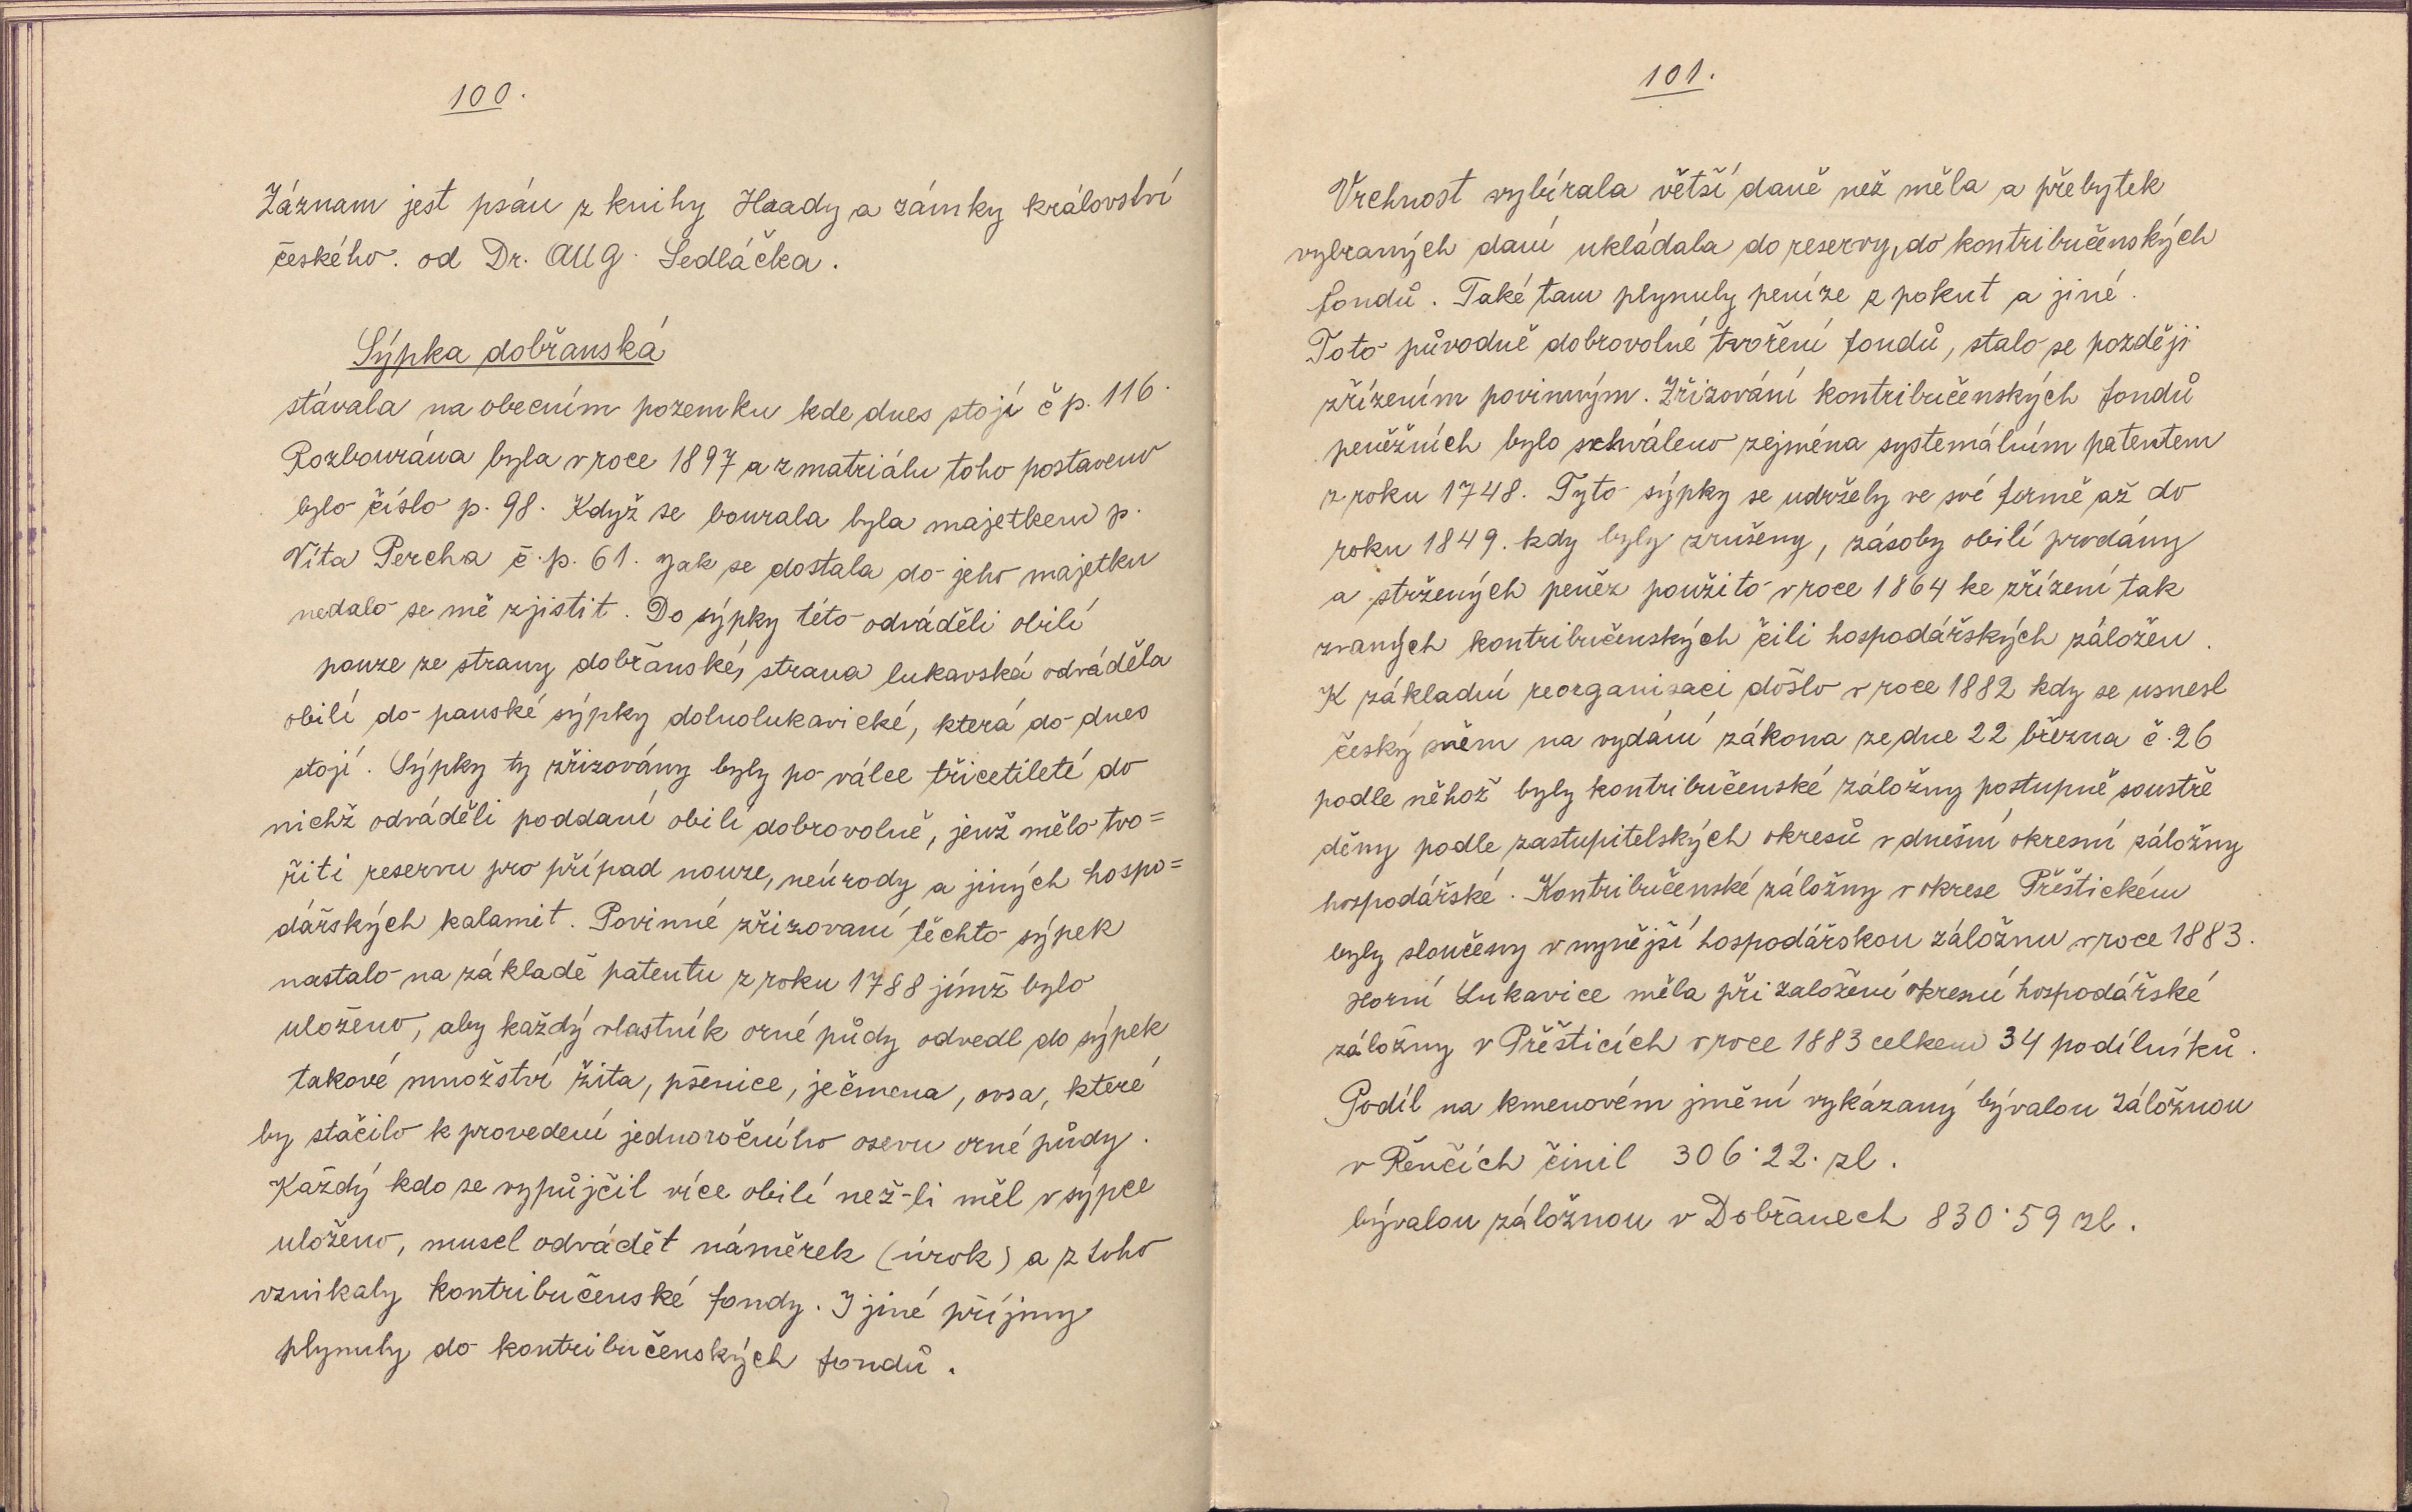 100.
Záznam jest psán z knihy Hrady a zámky království
českého. od Dr. Aug. Sedláčka.
Sýpka dobřanská
stávala na obecním pozemku kde dnes stojí č p. 116.
Rozbourána byla v roce 1897 a z matriálu toho postaveno
bylo číslo p. 98. Když se bourala byla majetkem p.
Víta Percha č. p. 61. Jak se dostala do jeho majetku
nedalo se mě zjistit. Do sýpky této odváděli obilí
pouze ze strany dobřanské, strana lukavská odváděla
obilí do panské sýpky dolnolukavické, která do dnes
stojí. Sýpky ty zřizovány byly po válce třicetileté do
nichž odváděli poddaní obilí dobrovolně, jenž mělo tvo=
řiti reservu pro případ nouze, neúrody a jiných hospo=
dářských kalamit. Povinné zřizovaní těchto sýpek
nastalo na základě patentu z roku 1788 jímž bylo
uloženo, aby každý vlastník orné půdy odvedl do sýpek
takové množství žita, pšenice, ječmena, ovsa, které
by stačilo k provedení jednoročního osevu orné půdy.
Každý kdo se vypůjčil více obilí než-li měl v sýpce
uloženo, musel odvádět náměrek (úrok) a z toho
vznikaly kontribučenské fondy. I jiné příjmy
plynuly do kontribučenských fondů.
101.
Vrchnost vybírala větší daně než měla a přebytek
vybraných daní ukládala do reservy, do kontribučenských
fondů. Také tam plynuly peníze z pokut a jiné.
Toto původně dobrovolné tvoření fondů, stalo se později
zřízením povinným. Zřizování kontribučenských fondů
peněžních bylo schváleno zejména systemálním patentem
z roku 1748. Tyto sýpky se udržely ve své formě až do
roku 1849. kdy byly zrušeny, zásoby obilí prodány
a stržených peněz použito v roce 1864 ke zřízení tak
zvaných kontribučenských čili hospodářských záložen.
K základní reorganisaci došlo v roce 1882 kdy se usnesl
český sněm na vydání zákona ze dne 22 března č. 26
podle něhož byly kontribučenské záložny postupně soustře
děny podle zastupitelských okresů v dnešní okresní záložny
hospodářské. Kontribučenské záložny v okrese Přeštickém
byly sloučeny v nynější hospodářskou záložnu v roce 1883.
Horní Lukavice měla při založení okresní hospodářské
záložny v Přešticích v roce 1883 celkem 34 podílníků.
Podíl na kmenovém jmění vykázaný bývalou záložnou
v Řenčích činil 306.22. zl.
bývalou záložnou v Dobřanech 830.59 zl.